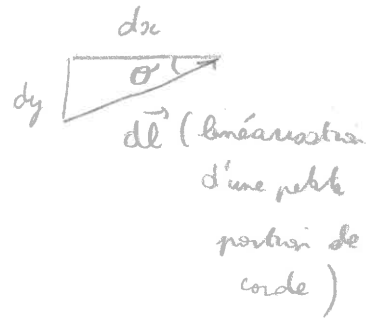 dx
θ
dy
d\vec{l} (linéarisation
d'une petite
portion de
corde)